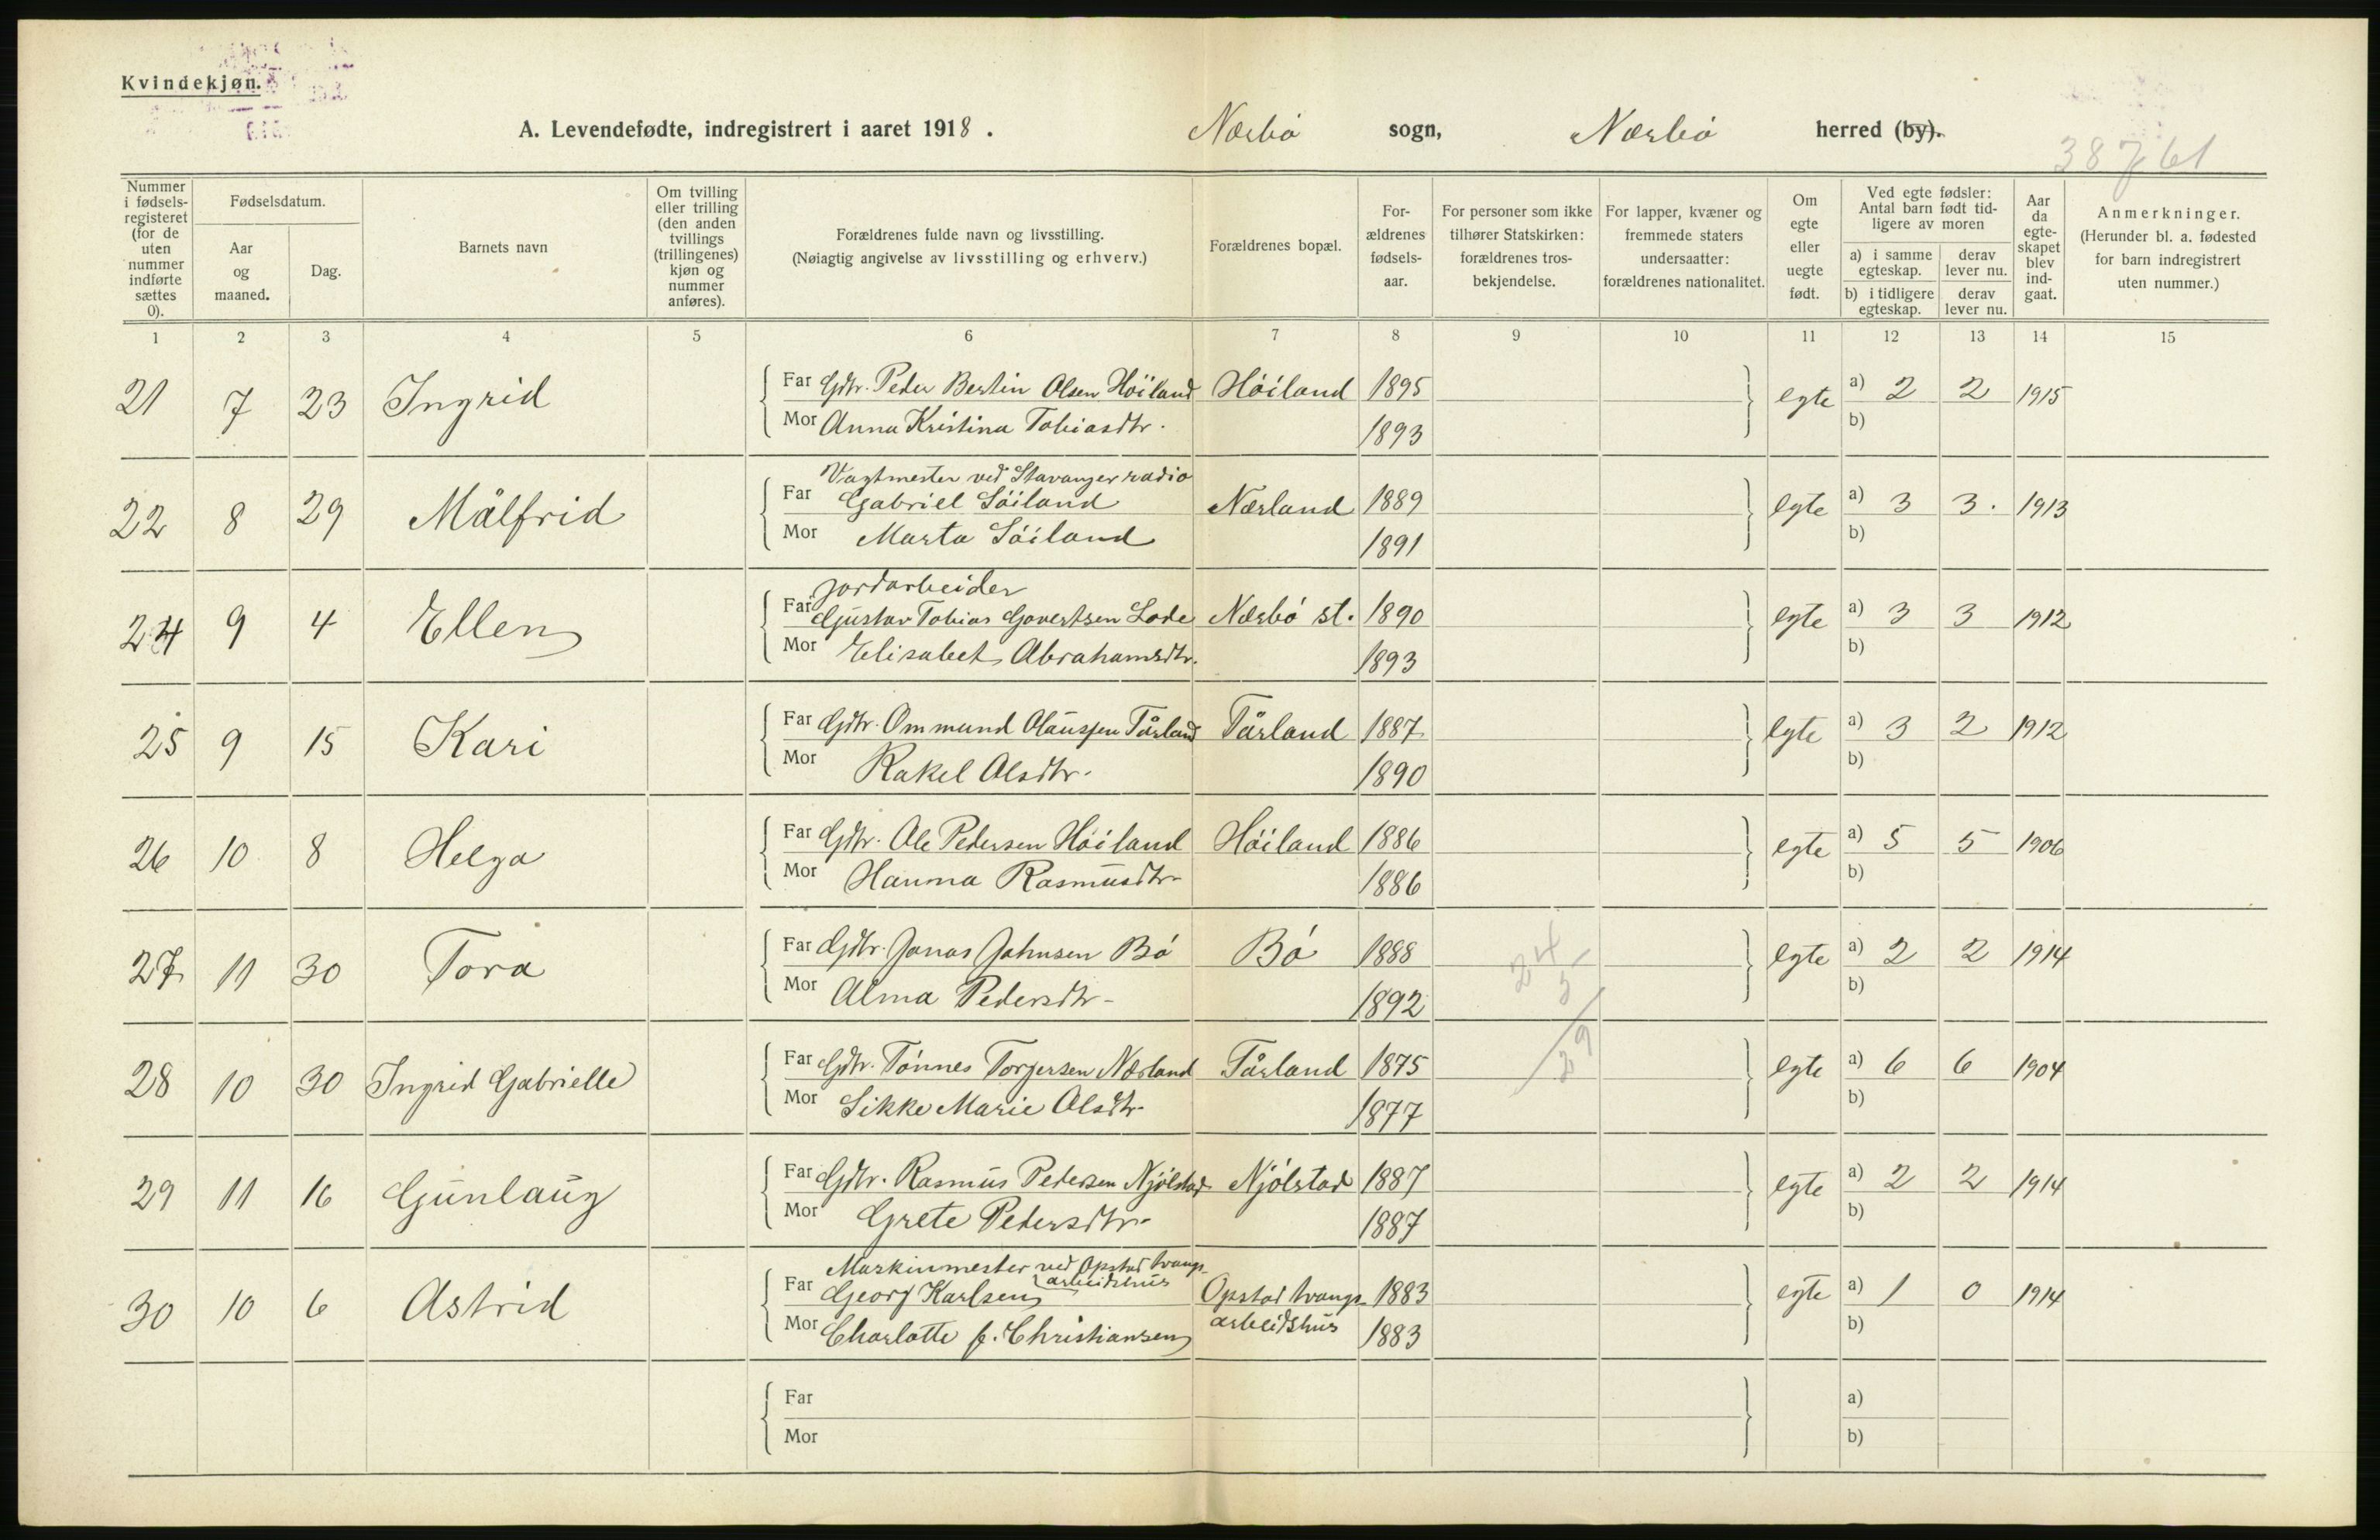 Kvindekjøn.
A. Levendefødte, indregistrert i aaret 1918. Nærbö sogn, Nærbö herred (by).
38761
Nummer i fødselsregisteret (for de uten nummer indførte sættes 0).
Fødselsdatum.
Aar og maaned.
Dag.
Barnets navn
Om tvilling eller trilling (den anden tvillings (trillingenes) kjøn og nummer anføres).
Forældrenes fulde navn og livsstilling.
(Nøiagtig angivelse av livsstilling og erhverv.)
Forældrenes bopæl.
Forældrenes fødselsaar.
For personer som ikke tilhører Statskirken: forældrenes trosbekjendelse.
For lapper, kvæner og fremmede staters undersaatter: forældrenes nationalitet.
Om egte eller uegte født.
Ved egte fødsler: Antal barn født tidligere av moren
a) i samme egteskap. derav lever nu.
b) i tidligere egteskap. derav lever nu.
Aar da egteskapet blev indgaat.
Anmerkninger.
(Herunder bl. a. fødested for barn indregistrert uten nummer.)
1 2 3 4 5 6 7 8 9 10 11 12 13 14 15
21 7 23 Ingrid Far Gdtr. Peder Bertin Olsen Höiland Höiland 1895 egte a) 2 2 1915
Mor Anna Kristina Tobiasdtr. 1893 b)
Vagtmester ved Stavanger radio
22 8 29 Målfrid Far Gabriel Söiland Nærland 1889 egte a) 3 3. 1913
Mor Marta Söiland 1891 b)
Jordarbeider
24 9 4 Ellen Far Gustav Tobias Govertsen Lode Nærbö st. 1890 egte a) 3 3 1912
Mor Elisabet Abrahamsdtr. 1893 b)
25 9 15 Kari Far Gdtr. Ommund Olaussen Tårland Tårland 1887 egte a) 3 2 1912
Mor Rakel Olsdtr. 1890 b)
26 10 8 Helga Far Gdtr. Ole Pedersen Höiland Höiland 1886 egte a) 5 5 1906
Mor Hanna Rasmusdtr 1886 b)
27 11 30 Tora Far Gdtr. Jonas Johnsen Bö Bö 1888 egte a) 2 2 1914
Mor Alma Pedersdtr 1892 b)
24
5
29
28 10 30 Ingrid Gabrielle Far Gdtr. Tönnes Torgersen Nærland Tårland 1875 egte a) 6 6 1904
Mor Sikke Marie Olsdtr 1877 b)
29 11 16 Gunlaug Far Gdtr. Rasmus Pedersen Njölstad Njölstad 1887 egte a) 2 2 1914
Mor Grete Pedersdtr. 1887 b)
Maskinmester ved Opstad tvangs-
arbeidshus
30 10 6 Astrid Far Georg Karlsen Opstad tvangs- 1883 egte a) 1 0 1914
Mor Charlotte f. Christiansen arbeidshus 1883 b)
Far a)
Mor b)